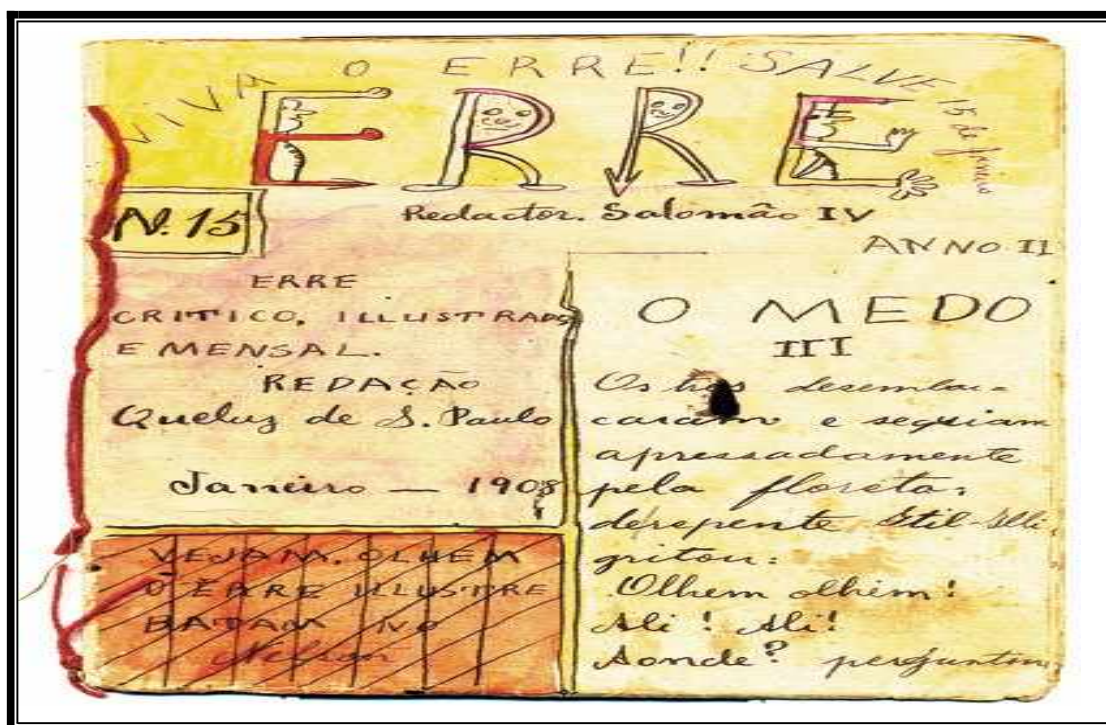 VIVA O ERRE!! SALVE 15 de janeiro
ERRE
N. 15
Redactor. Salomão IV
ANNO II
ERRE
CRITICO, ILLUSTRADO
E MENSAL.
REDAÇÃO
Queluz de S. Paulo
Janeiro — 1908
VEJAM, OLHEM
O ERRE ILLUSTRE
BATAM NO
Nelson
O MEDO
III
Os tres desembar-
caram e seguiam
apressadamente
pela floresta,
derepente
gritou:
Olhem olhem!
Ali! Ali!
Aonde? perguntou